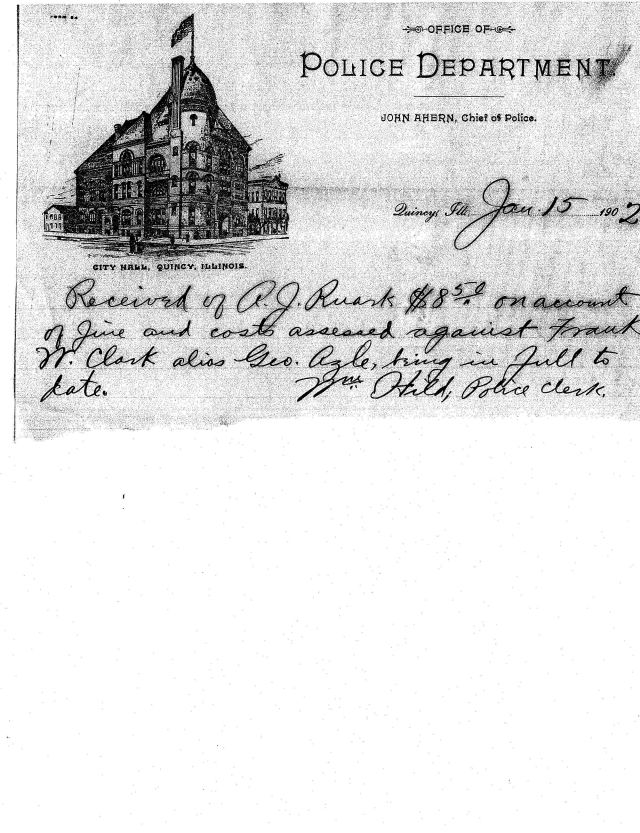 OFFICE OF
POLICE DEPARTMENT.
JOHN AHERN, Chief of Police.
Quincy, Ill. Jan 15 1902
CITY HALL, QUINCY, ILLINOIS.
Received of A. J. Ruark $8 50 on account
of fine and costs assessed against Frank
W. Clark alias Geo. Agle, being in full to
date. Wm Hild, Police Clerk.